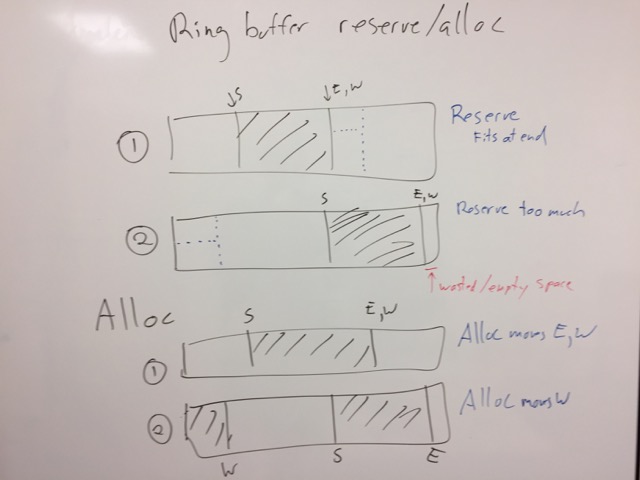 Ring buffer reserve/alloc
S E,W
1 Reserve
Fits at end
S E,W
2 Reserve too much
wasted/empty space
Alloc
S E,W
1 Alloc moves E,W
2 Alloc moves W
W S E